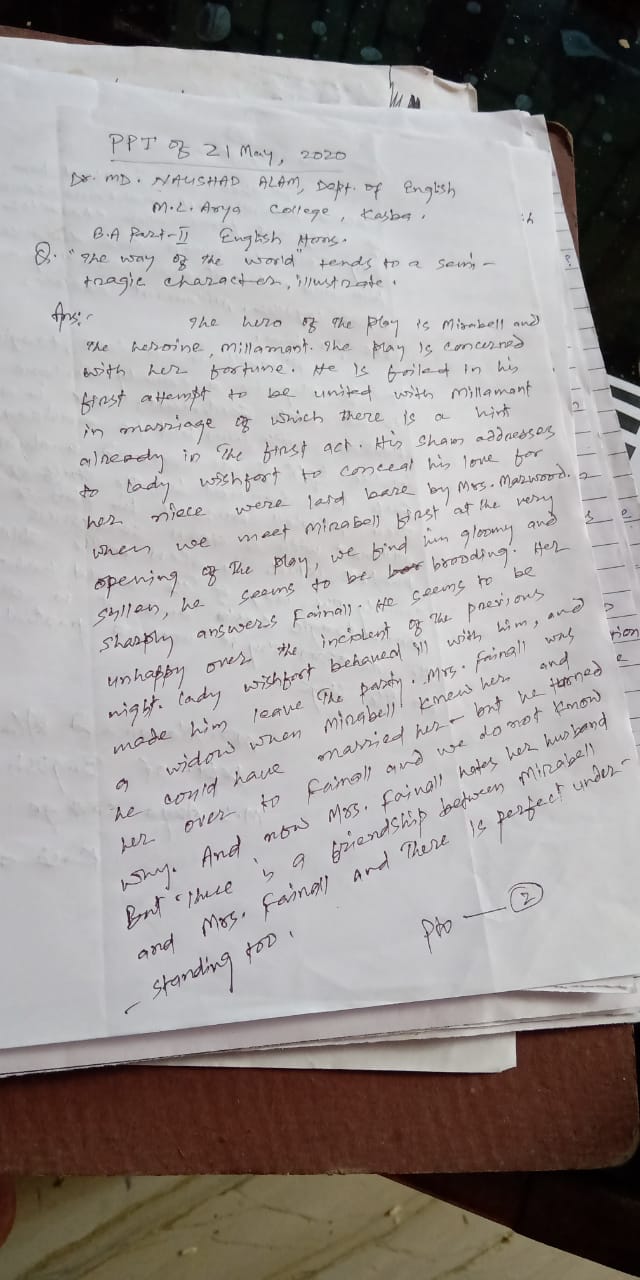 PPT of 21 May, 2020
Dr. MD. NAUSHAD ALAM, Dept. of English
M.L. Arya College, Kasba.
B.A Part-II English Hons.
Q. "The way of the world" tends to a semi-
tragic character, illustrate.
Ans:- The hero of the play is Mirabell and
the heroine, Millamant. The play is concerned
with her fortune. He is foiled in his
first attempt to be united with Millamant
in marriage of which there is a hint
already in the first act. His sham addresses
to lady wishfort to conceal his love for
her niece were laid bare by Mrs. Marwood.
when we meet Mirabell first at the very
opening of the play, we find him gloomy and
sullen, he seems to be brooding. Her
sharply answers Fainall. He seems to be
unhappy over the incident of the previous
night. Lady wishfort behaved ill with him, and
made him leave the party. Mrs. Fainall was
a widow when Mirabell knew her and
he could have married her but he turned
her over to Fainall and we do not know
why. And now Mrs. Fainall hates her husband
But there is a friendship between Mirabell
and Mrs. Fainall and there is perfect under-
-standing too.
Pto — 2